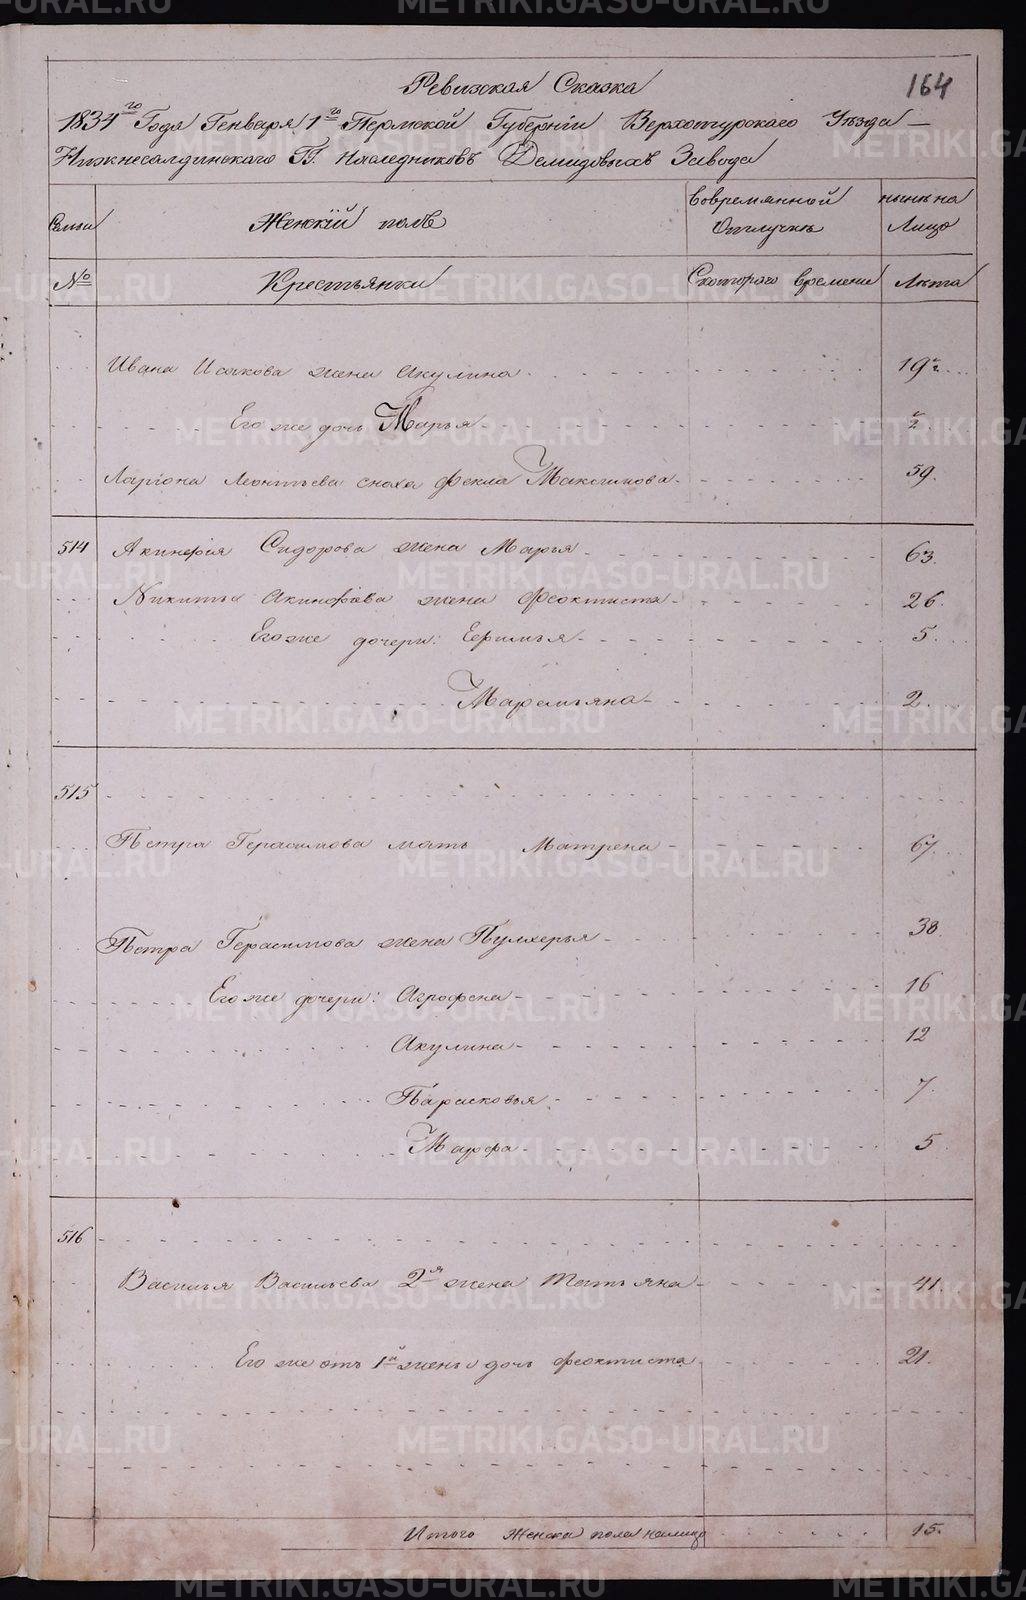 Ревизская Сказка
164
1834го Года Генваря 1го Пермской Губернiи Верхотурскаго Уѣзда
Нижнесалдинскаго ГГ. Наследниковъ Демидовыхъ Завода
Семьи Женскiй полъ Вовремянной Отлучкѣ нынѣ на Лицо
№ Крестьянки Скотораго времени Лѣта
Ивана Исакова жена Акулина 19
Его же дочь Марья 2
Ларiона Леонтьева сноха Фекла Максимова 59.
514 Акинфiя Сидорова жена Марья 63.
Никиты Акинфiева жена Феоктиста 26.
Его же дочери: Еѳимья 5.
Маремьяна 2.
515
Петра Герасимова мать Матрена 67.
Петра Герасимова жена Пулхерья 38.
Его же дочери: Аграфена 16
Акулина 12
Парасковья 7.
Марфа 5
516
Василья Васильева 2я жена Татьяна 41.
Его же отъ 1й жены дочь Феоктиста 21.
Итого Женска пола налицо 15.
METRIKI.GASO-URAL.RU